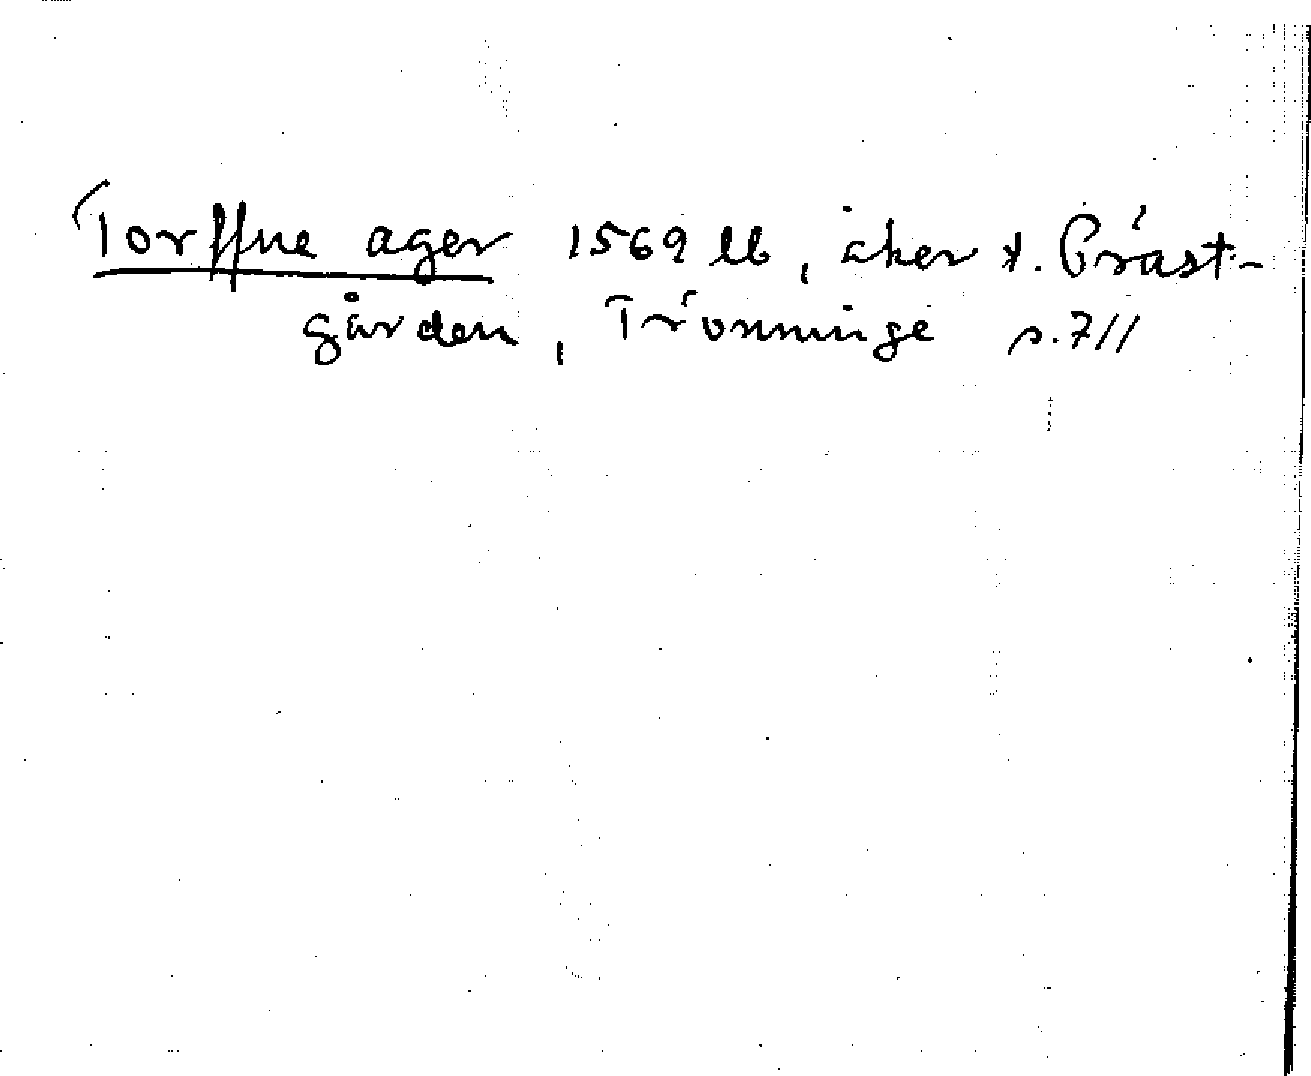 Torffne ager 1569 lb, åker t. Präst-
gården, Trönninge s. 711